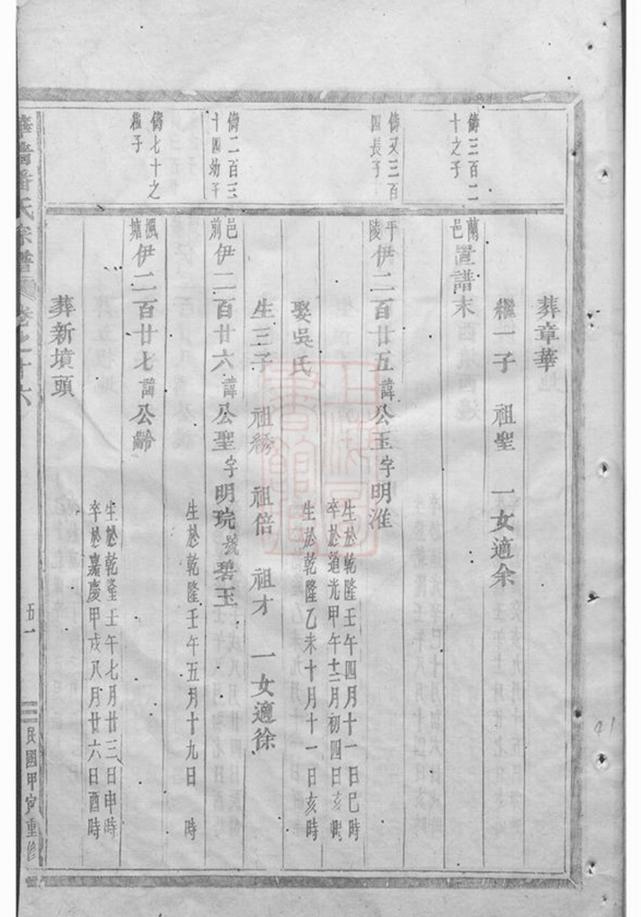 葬章華
繼一子 祖聖 一女適余
蘭邑置譜末
傳三百二十之子
平陵伊二百廿五諱公玉字明淮
生於乾隆壬午四月十一日巳時
卒於道光甲午十二月初四日亥時
傳又三百四長子
娶吳氏
生於乾隆乙未十月十一日亥時
生三子 祖綉 祖倍 祖才 一女適徐
邑前伊二百廿六諱公聖字明琓號碧玉
生於乾隆壬午五月十九日 時
傳二百三十四幼子
楓塘伊二百廿七諱公齡
生於乾隆壬午七月廿三日申時
卒於嘉慶甲戌八月廿六日酉時
傳七十之繼子
葬新墳頭
潘氏宗譜 卷之十六
五一
民國甲寅重修